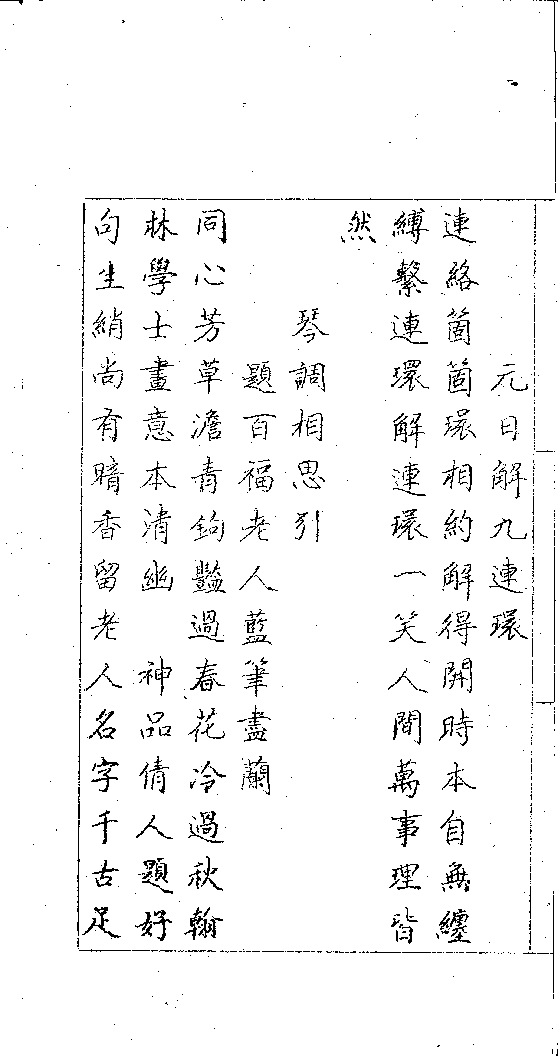 元日解九連環
連絡箇箇環相約解得開時本自無纏
縛繫連環解連環一笑人間萬事理皆
然
琴調相思引
題百福老人藍筆畫蘭
同心芳草澹青鉤豔過春花冷過秋翰
林學士畫意本清幽　神品倩人題好
句生綃尚有暗香留老人名字千古足